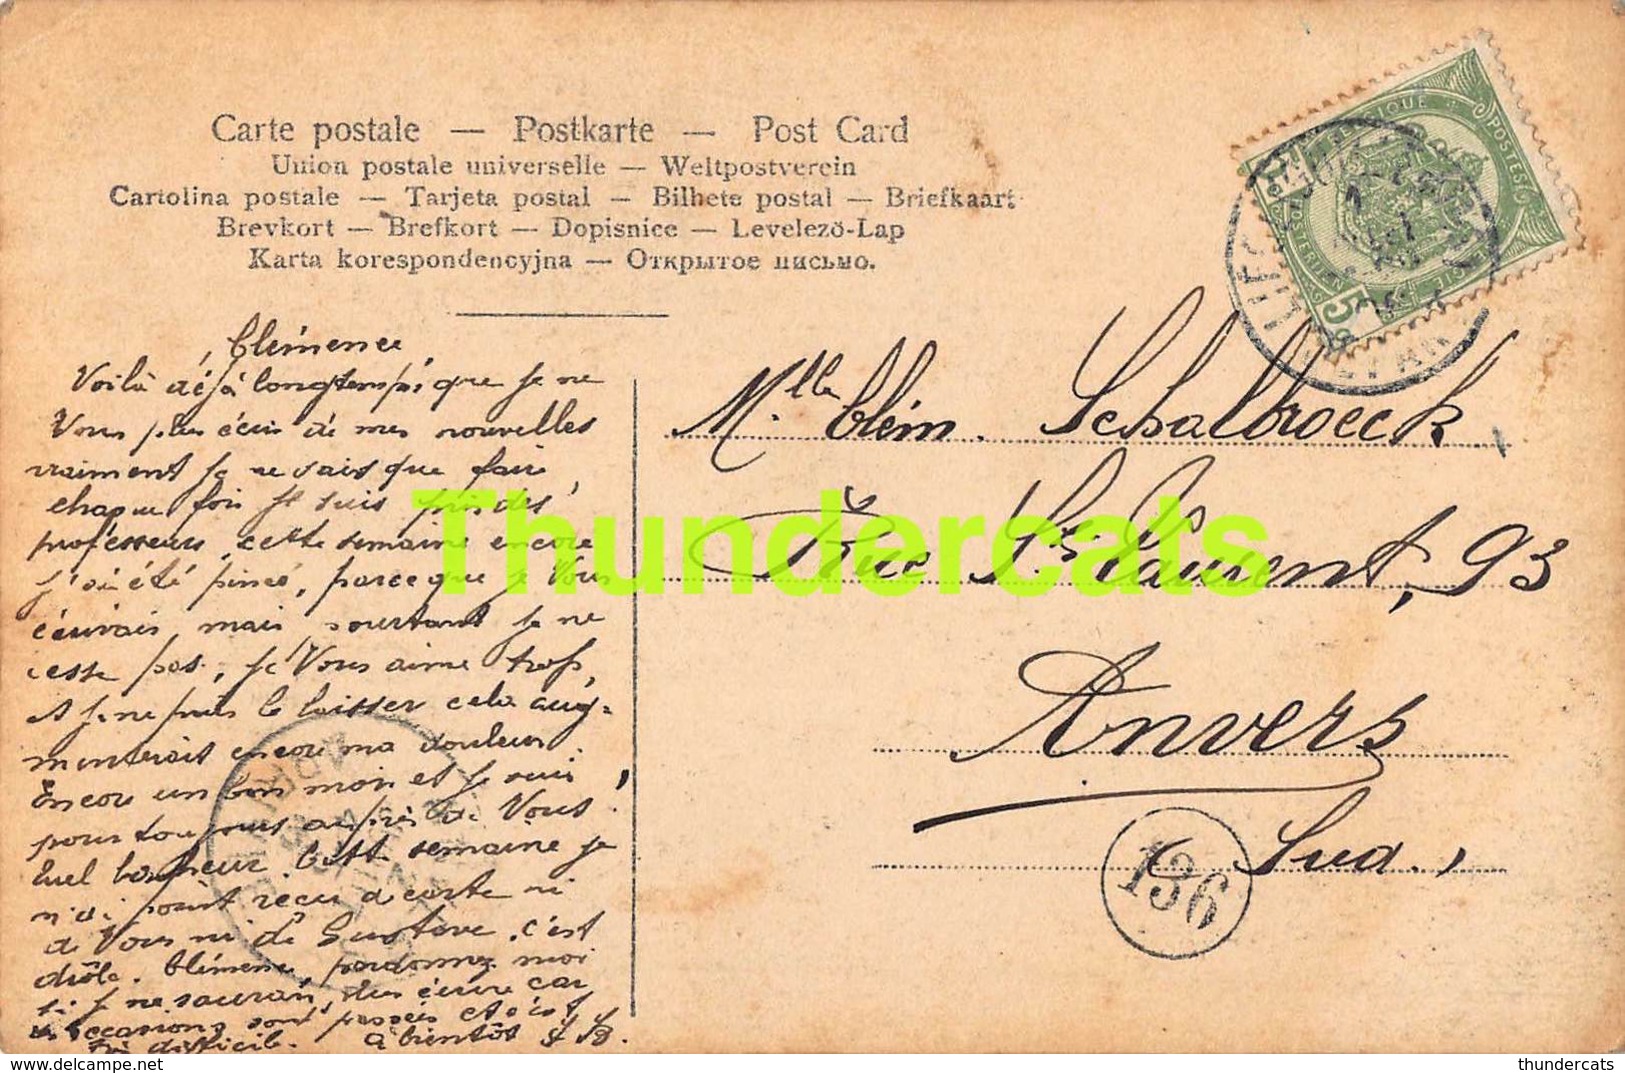 Carte postale — Postkarte — Post Card
Union postale universelle — Weltpostverein
Cartolina postale — Tarjeta postal — Bilhete postal — Briefkaart
Brevkort — Brefkort — Dopisnice — Levelező-Lap
Karta korespondencyjna — Открытое письмо.
BELGIQUE POSTES
5
Clémence
Voilà déjà longtemps que je ne
Vous plus écris de mes nouvelles
vraiment je ne sais que faire,
chaque fois je suis pris des
professeurs, cette semaine encore
j'ai été pincé, parce que je Vous
écrivais, mais pourtant je ne
cesse pas, je Vous aime trop,
et je ne puis le laisser cela aug-
menterait encore ma douleur.
Encore un bon mois et je suis
pour toujours auprès de Vous.
Quel bonheur. Cette semaine je
n'ai point reçu de carte ni
de Vous ni de Gustave, c'est
drôle. Clémence, pardonnez moi
si je ne saurais, plus écrire car
les occasions sont passées et c'est
très difficile. à bientôt
Mlle Clém. Schalbroeck
Rue St Laurent, 93
Anvers
(Sud.)
136
Thundercats
thundercats